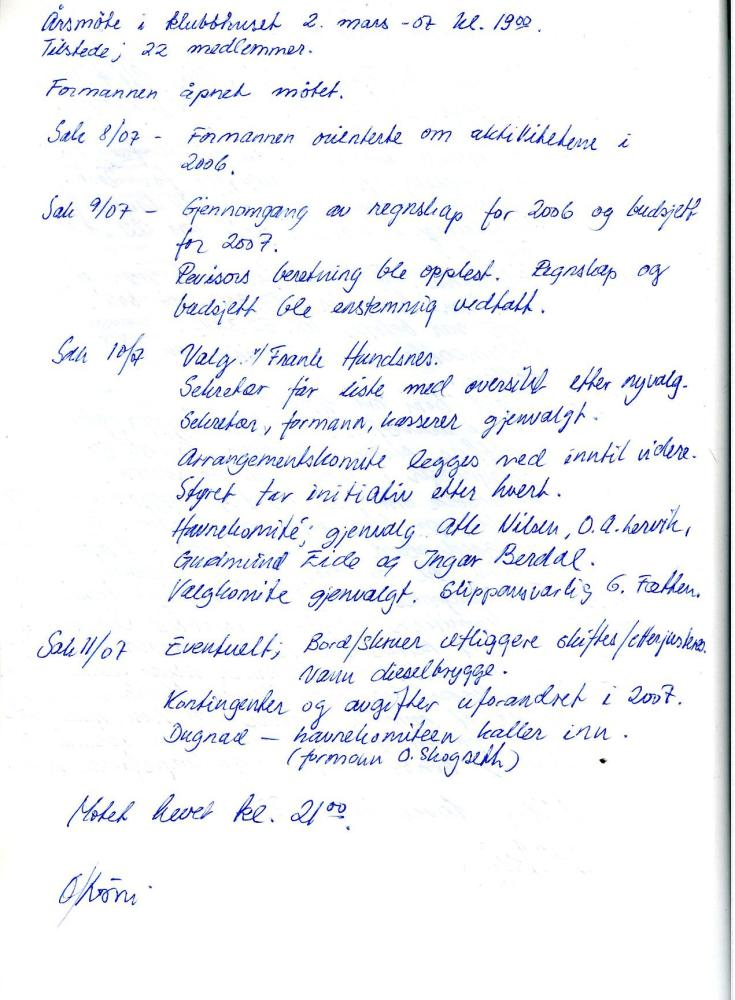 Årsmöte i klubbhuset 2. mars -07 kl. 19⁰⁰.
Tilstede; 22 medlemmer.
Formannen åpnet mötet.
Sak 8/07 - Formannen orienterte om aktivitetene i
2006.
Sak 9/07 - Gjennomgang av regnskap for 2006 og budsjett
for 2007.
Revisors beretning ble opplest. Regnskap og
budsjett ble enstemmig vedtatt.
Sak 10/07 Valg v/Frank Hundsnes.
Sekretær får liste med oversikt etter nyvalg.
Sekretær, formann, kasserer gjenvalgt.
Arrangementskomite legges ned inntil videre.
Styret tar initiativ etter hvert.
Havnekomité; gjenvalg Atle Nilsen, O.A. Lervik,
Gudmund Eide og Ingar Berdal.
Valgkomite gjenvalgt. Slippansvarlig G. Fætten.
Sak 11/07 Eventuelt; Bord/skruer utliggere skiftes/etterjusteres.
Vann dieselbrygge.
Kontingenter og avgifter uforandret i 2007.
Dugnad - havnekomiteen kaller inn.
(formann O. Skogseth)
Mötet hevet kl. 21⁰⁰.